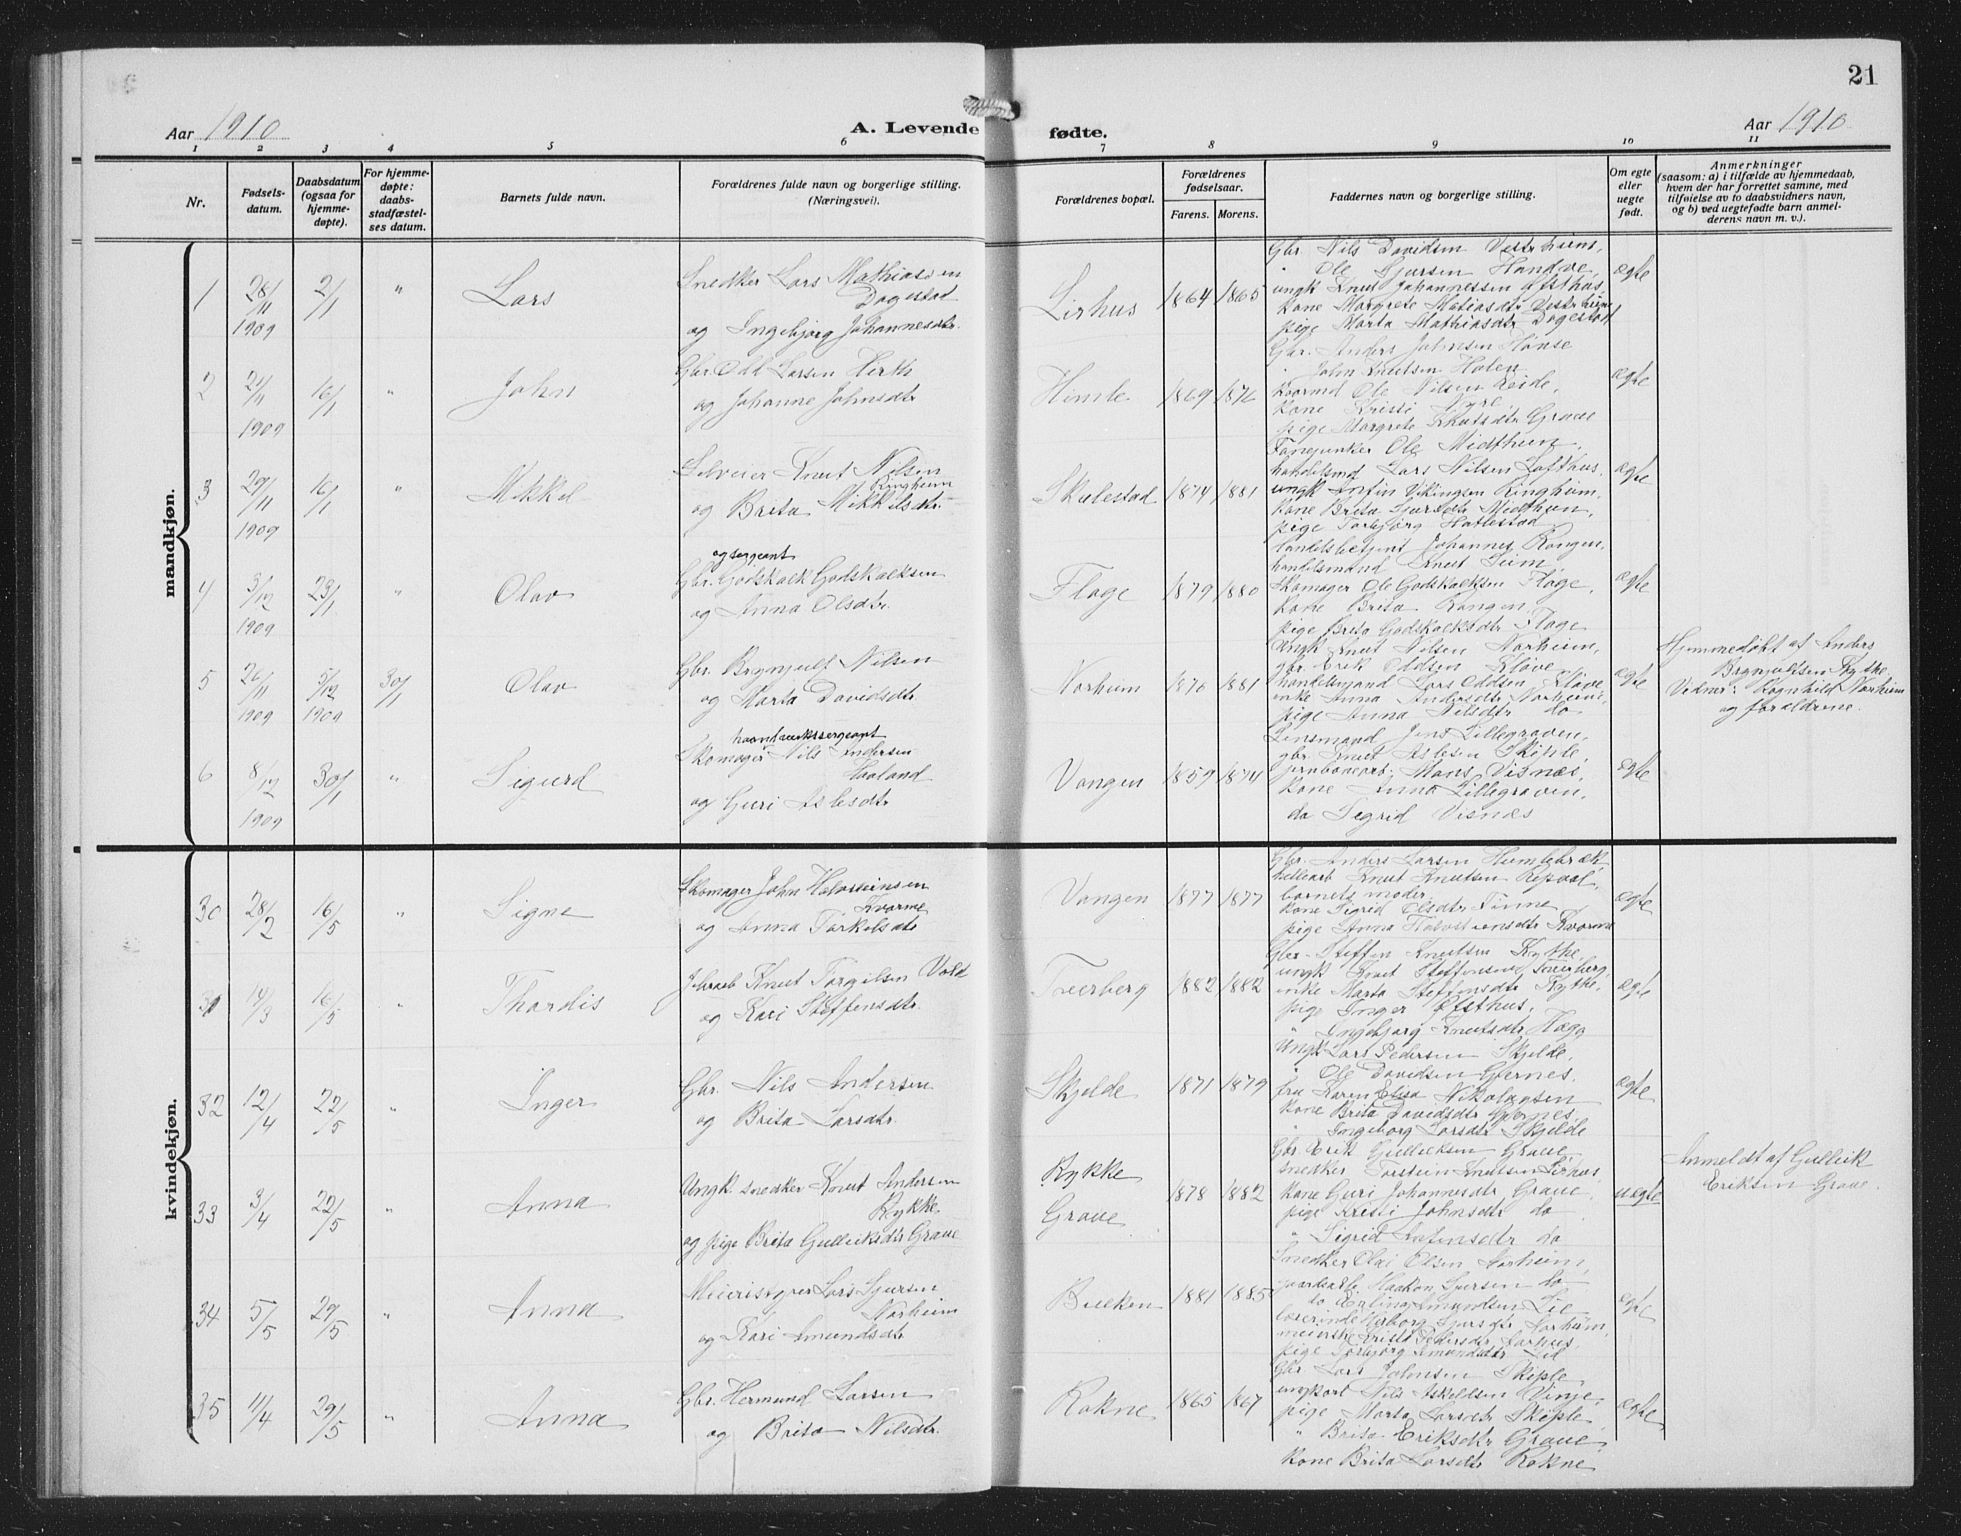 21
Aar 1910
A. Levende fødte.
Aar 1910
1 2 3 4 5 6 7 8 9 10 11
Nr.
Fødselsdatum.
Daabsdatum (ogsaa for hjemmedøpte).
For hjemmedøpte: daabsstadfæstelses datum.
Barnets fulde navn.
Forældrenes fulde navn og borgerlige stilling. (Næringsvei).
Forældrenes bopæl.
Forældrenes fødselsaar.
Farens. Morens.
Faddernes navn og borgerlige stilling.
Om egte eller uegte født.
Anmerkninger
(saasom: a) i tilfælde av hjemmedaab, hvem der har forrettet samme, med tilføielse av to daabsvidners navn, og b) ved uegtefødte barn anmelderens navn m. v.).
mandkjøn.
1 28/11 1909 2/1 " Lars
Snedker Lars Mathiasen
Dagestad
og Ingebjørg Johannesdtr.
Lirhus 1864 1865
Gbr. Nils Davidsen Vestrheim,
" Ole Sjursen Handve,
ungk Knut Johannessen Æsthus,
Kone Margrete Matiasdtr Vestrheim
pige Marta Mathiasdtr Dagestad
ægte
2 21/11 1909 16/1 " John
Gbr. Odd Larsen Hirth
og Johanne Johnsdtr
Himle 1869 1876
Gbr. Anders Johnsen Hönse
" John Knutsen Holen
Kvarmd Ole Nilsen Reide,
Kone Kristi Gjøre
pige Margrete Knutsdtr Graue
ægte
3 29/11 1909 16/1 " Mikkel
Selveier Knut Nilsen
Ringheim
og Brita Mikkelsdtr.
Skulestad 1874 1881
Fanejunker Ole Midthun,
handelsmd Lars Nilsen Lofthus,
ungk Anfin Vikingsen Ringheim,
Kone Brita Sjursdtr Midthun,
pige Torbjørg Hattestad
ægte
4 3/12 1909 23/1 " Olav
og sergeant
Gbr. Godskalk Godskalksen
og Anna Olsdtr.
Flage 1879 1880
Handelsbetjent Johannes Rongen,
handelsmand Knut Seim,
Skomager Ole Godskalksen Flage,
Kone Brita Rongen,
pige Brita Godskalksdtr Flage
ægte
5 26/11 1909 5/12 1909 30/1 Olav
Gbr. Brynjulf Nilsen
og Marta Davidsdtr.
Norheim 1876 1881
Ungk Knut Nilsen Norheim,
gbr. Erik Oddsen Kløve,
handelsmand Lars Oddsen Kløve
enke Anna Andersdtr Norheim,
pige Anna Nilsdtr do
ægte
Hjemmedøbt af Anders
Brynjulfsen Kythe.
Vidner: Ragnhild Norheim
og forældrene.
6 8/12 1909 30/1 " Sigurd
haandverkssergeant
Skomager Nils Andersen
Haaland
og Guri Aslesdtr
Vangen 1859 1874
Lensmand Jens Lillegraven,
gbr. Knut Aslesen Skiple,
jernbanearb. Mons Visnæs,
Kone Anna Lillegraven,
do Sigrid Visnæs
ægte
kvindekjøn.
30 28/2 16/5 " Signe
Skomager John Halvsteinsen
Kvarme
og Anna Torkelsdtr
Vangen 1877 1877
Gbr. Anders Larsen Humlebræk
hellearb Knut Knutsen Repaal,
barnets moder,
Kone Sigrid Olsdtr Finne,
pige Anna Halvsteinsdtr Kvarme
ægte
31 14/3 16/5 " Thordis
Jbraeb Knut Torgilsen Vold
og Kari Steffensdtr.
Tverberg 1882 1882
Gbr. Steffen Knutsen Kythe,
ungk Knut Steffensen Tverberg,
enke Marta Steffensdtr Kythe,
pige Inger Æsthus,
" Ingebjørg Knutsdtr Haga
ægte
32 12/4 22/5 " Inger
Gbr. Nils Andersen
og Brita Larsdtr.
Skjelde 1871 1879
Ungk Lars Pedersen Skjelde,
" Ole Davidsen Gjernes,
fru Karen Elisa Nikolaysen
Kone Brita Davidsdtr Gjernes,
" Ingeborg Larsdtr Skjelde
ægte
33 3/4 22/5 " Anna
Ungk. snedker Knut Andersen
Rykke
og pige Brita Gulleiksdtr Graue
Rykke
Graue
1878 1882
Gbr. Erik Gulleiksen Graue,
snedker Torstein Knutsen Lirhus,
Kone Guri Johannesdtr Graue,
pige Kristi Johnsdtr do
" Sigrid Anfinsdtr do
uægte
Anmeldt af Gulleik
Eriksen Graue.
34 5/5 29/5 " Anna
Meieristyrer Lars Sjursen
Norheim
og Kari Amundsdtr
Bulken 1881 1885
Snedker Olai Olsen Norheim,
gaardsarb. Haakon Sjursen do
do Erling Amundsen Lie
Lærerinde Herborg Sjursdtr Norheim,
meierske Krista Pedersdtr Aarhus,
pige Torbjørg Amundsdtr Lid
ægte
35 11/4 29/5 " Anna
Gbr. Hermund Larsen
og Brita Nilsdtr.
Rokne 1865 1867
Gbr Lars Johnsen Skiple,
ungkarl Nils Askeldsen Vinje,
pige Marta Larsdtr Skiple,
" Brita Eriksdtr Graue,
Kone Brita Larsdtr Rokne
ægte